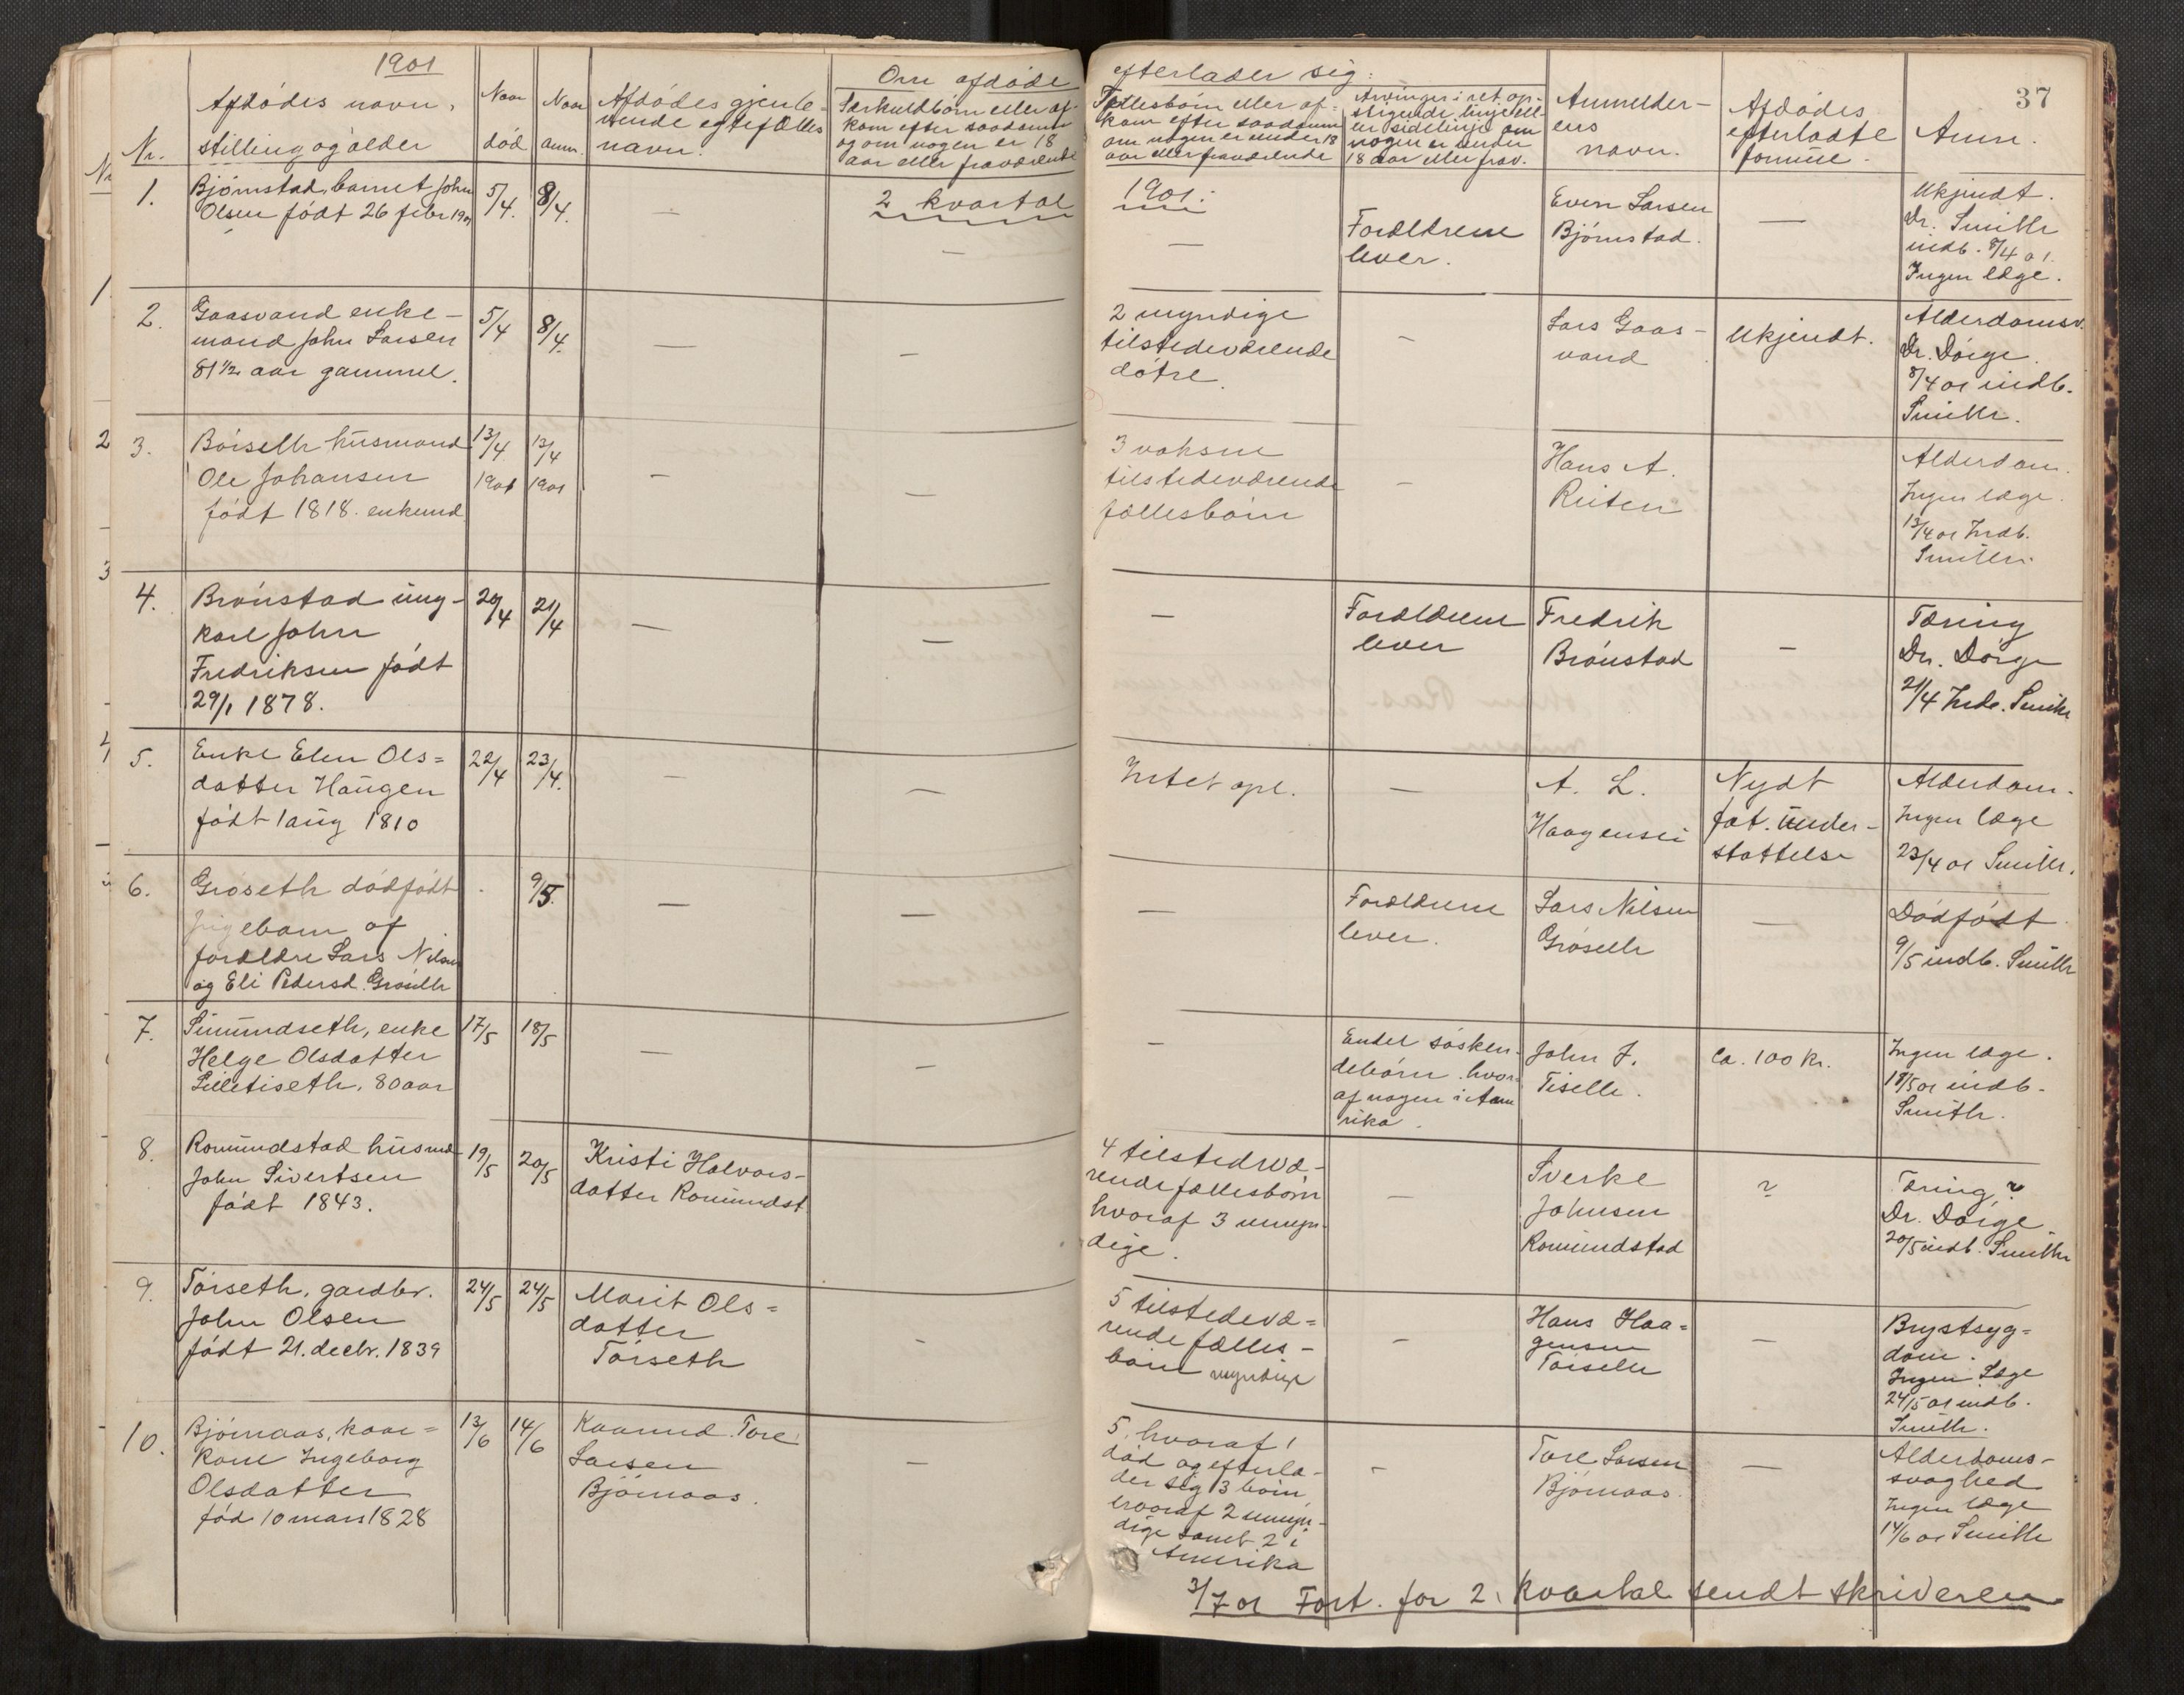 1901
37
Nr.
Afdødes navn,
stilling og alder
Naar
død
Naar
anm.
Afdødes gjenle-
vende egtefælles
navn.
Om afdøde
efterlader sig:
Særkuldbørn eller af-
kom efter saadanne
og om nogen er 18
aar eller fraværende
Fællesbørn eller af-
kom efter saadanne
om nogen er under 18
aar eller fraværende
Arvinger i ret op-
stigende linje ell-
er sidelinje om
nogen er under
18 aar eller frav.
Anmelder-
ens
navn.
Afdødes
efterladte
formue.
Anm.
2 kvartal
1901.
1.
Bjørnstad, barnet John
Olsen født 26 febr 1901
5/4.
8/4.
—
—
—
Forældrene
lever.
Even Larsen
Bjørnstad.
—
Ukjendt.
Dr. Smith
indb. 8/4 01.
Ingen læge.
2.
Gaasvand enke-
mand John Larsen
81 1/2 aar gammel.
5/4
8/4.
—
—
2 myndige
tilstedeværende
døtre.
-
Lars Gaas-
vand
Ukjendt.
Alderdomsv.
Dr. Dørge.
8/4 01 indb.
Smith.
3.
Bøiseth husmand
Ole Johansen
født 1818. enkemd
13/4
1901
13/4
1901
—
—
3 voksne
tilstedeværende
fællesbørn
-
Hans A.
Reiten
Alderdom.
Ingen læge.
13/4 01 Indb.
Smith.
4.
Brønstad ung-
karl John
Fredriksen født
29/1 1878.
20/4
21/4
—
—
—
Forældrene
lever
Fredrik
Brønstad
—
Tæring
Dr. Dørge
21/4 Indb. Smith
5.
Enke Elen Ols=
datter Haugen
født 1 aug 1810
22/4
23/4.
—
—
Intet opl.
—
A. L.
Haagensen
Nydt
fat. under-
støttelse
Alderdom.
Ingen læge
23/4 01 Smith.
6.
Grøseth dødfødt
pigebarn af
forældre Lars Nilsen
og Eli Pedersd. Grøseth
9/5.
—
—
—
Forældrene
lever.
Lars Nilsen
Grøseth
—
Dødfødt
9/5 indb. Smith
7.
Simundseth, enke
Helge Olsdatter
Lilletiseth, 80 aar
17/5
18/5
—
—
-
Endel søsken-
debørn. hvor-
af nogen i Ame
rika.
John J.
Tiseth.
Ca. 100 kr.
Ingen læge.
18/5 01 indb.
Smith.
8.
Romundstad husmd
John Sivertsen
født 1843.
19/5
20/5
Kristi Halvors-
datter Romundst.
4 tilstedevæ-
rende fællesbørn
hvoraf 3 umyn-
dige.
—
Sverke
Johnsen
Romundstad
?
Tæring?
Dr. Dørge.
20/5 indb. Smith
9.
Tørseth, gardbr.
John Olsen
født 21. decbr. 1839
24/5
24/5
Marit Ols=
datter
Tørseth
-
5 tilstedevæ=
rende fælles-
børn myndige
-
Hans Haa=
gensen
Tørseth
—
Brystsyg=
dom.
Ingen Læge
24/5 01 indb.
Smith.
10.
Bjørnaas, kaar=
kone Ingeborg
Olsdatter
fød 10 mars 1828
13/6
14/6
Kaarmd. Tore
Larsen
Bjørnaas.
—
5, hvoraf 1
død og efterla-
der sig 3 børn,
hvoraf 2 umyn-
dige samt 2 i
Amerika
-
Tore Larsen
Bjørnaas.
—
Alderdoms-
svaghed
Ingen læge
14/6 01 Smith
3/7 01 Fort. for 2. kvartal sendt skriveren